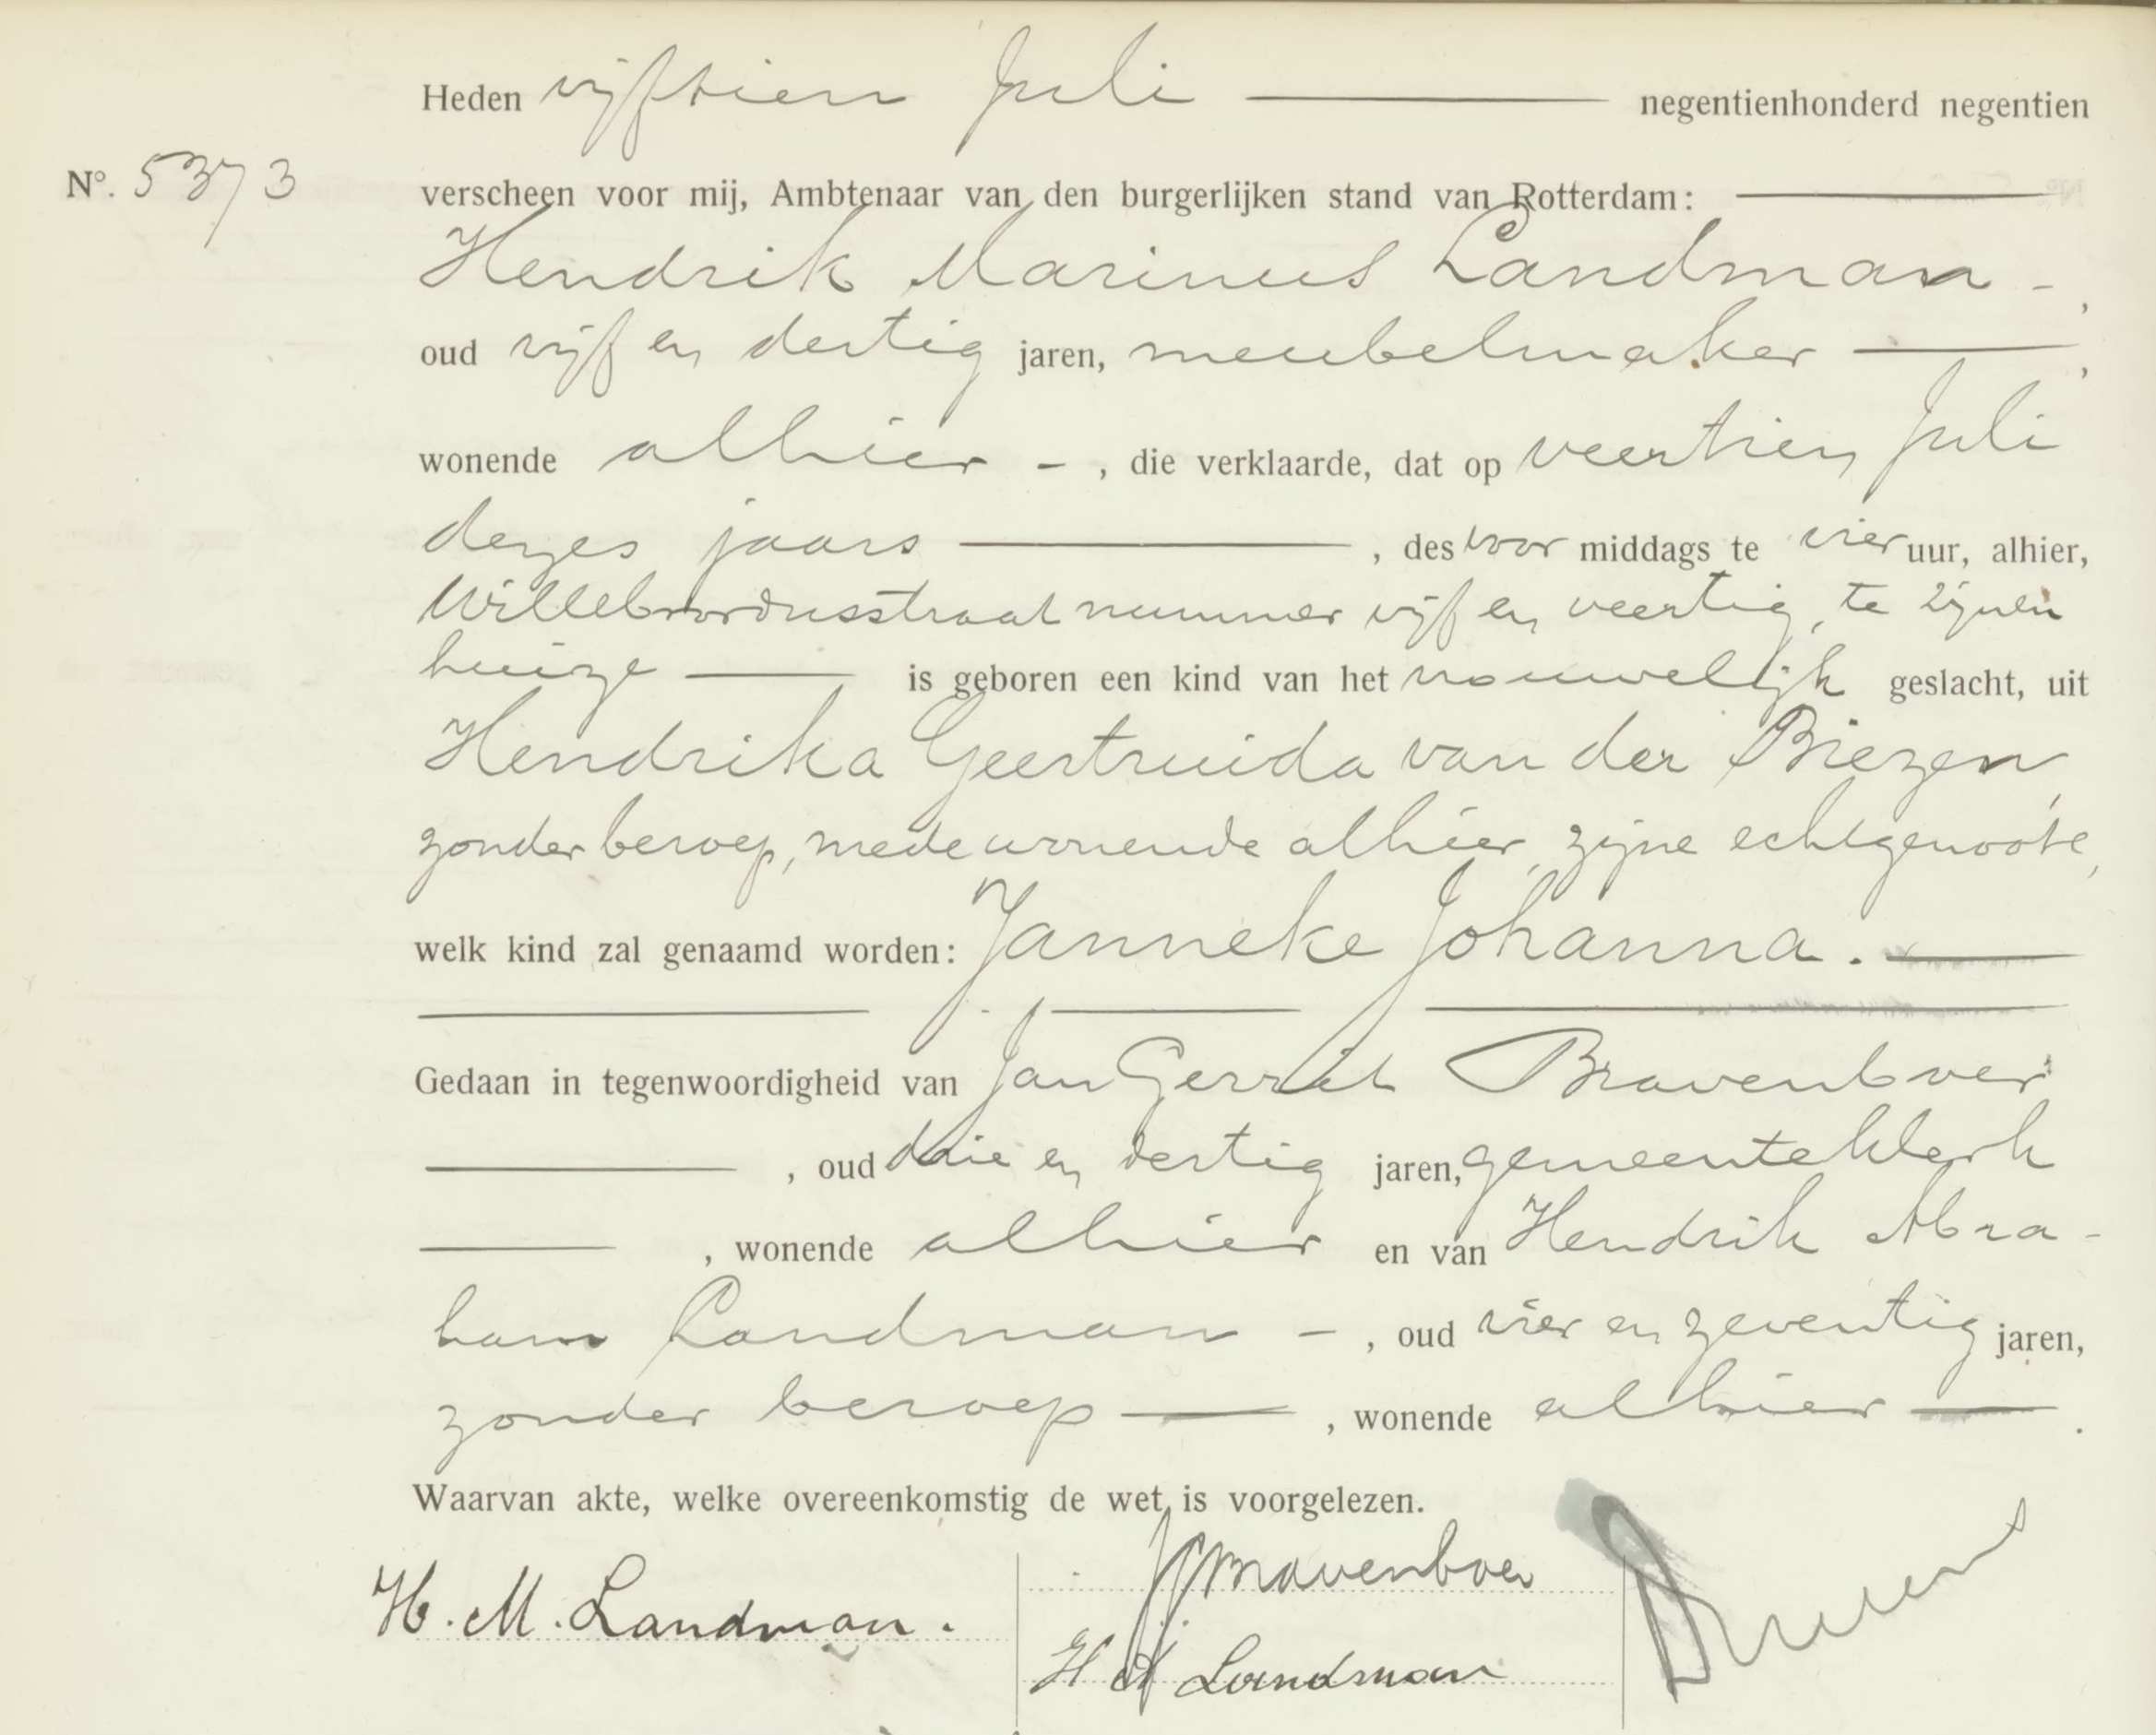 Heden vijftien Juli negentienhonderd negentien
N°. 5373
verscheen voor mij, Ambtenaar van den burgerlijken stand van Rotterdam:
Hendrik Marinus Landman -,
oud vijf en dertig jaren, meubelmaker,
wonende alhier -, die verklaarde, dat op veertien Juli
dezes jaars, des voor middags te vier uur, alhier,
Willebrordusstraat nummer vijf en veertig, te zijnen
huize is geboren een kind van het vrouwelijk geslacht, uit
Hendrika Geertruida van der Biezen,
zonder beroep, mede wonende alhier, zijne echtgenoote,
welk kind zal genaamd worden: Janneke Johanna.
Gedaan in tegenwoordigheid van Jan Gerrit Bravenboer
, oud drie en dertig jaren, gemeenteklerk
, wonende alhier en van Hendrik Abra-
ham Landman -, oud vier en zeventig jaren,
zonder beroep, wonende alhier.
Waarvan akte, welke overeenkomstig de wet, is voorgelezen.
JGBravenboer
H. M. Landman.
H A Landman